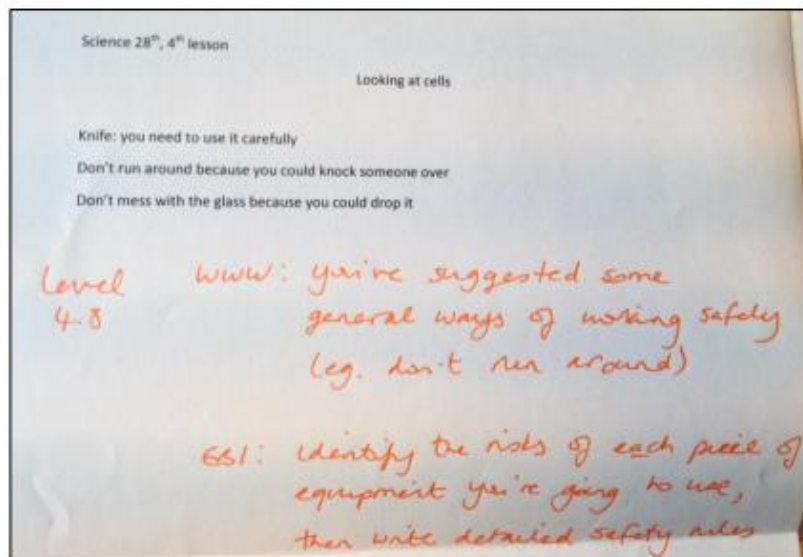 Science 28th, 4th lesson
Looking at cells
Knife: you need to use it carefully
Don't run around because you could knock someone over
Don't mess with the glass because you could drop it
Level
4.8
WWW: you've suggested some
general ways of working safely
(eg. don't run around)
EBI: identify the risks of each piece of
equipment you're going to use,
then write detailed safety rules